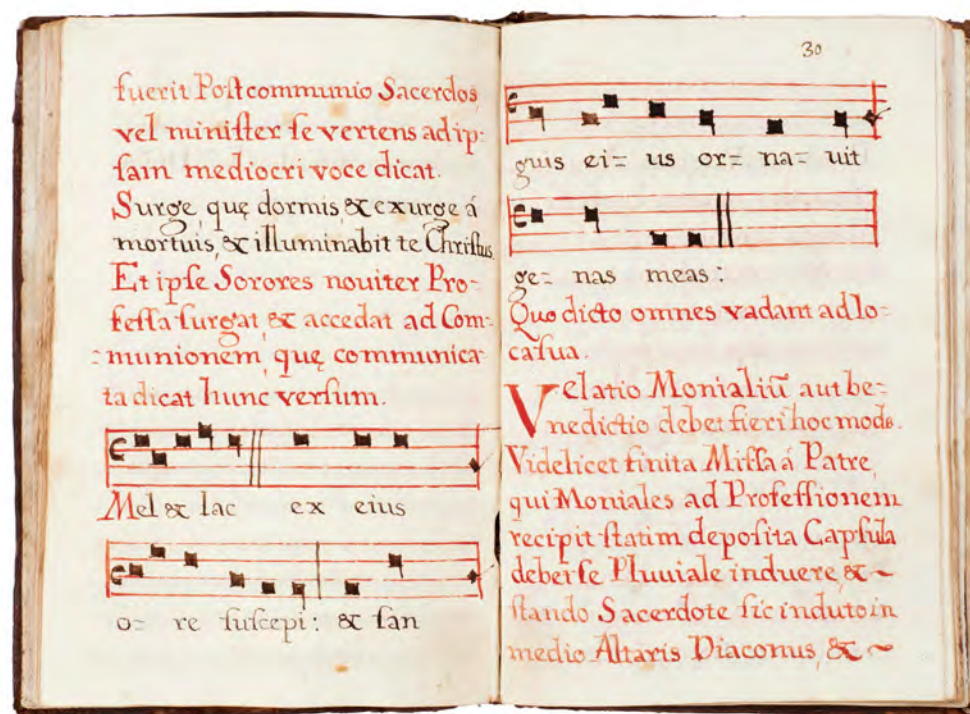 fuerit Postcommunio Sacerdos
vel minister se vertens ad ip=
sam mediocri voce dicat.
Surge, quę dormis, & exurge á
mortuis, & illuminabit te Christus.
Et ipse Sorores noviter Pro=
fessa surgat, & accedat ad Com=
=munionem, quę communica=
ta dicat hunc versum.
Mel & lac ex eius
o= re suscepi: & san
30
guis ei= us or= na= uit
ge= nas meas:
Quo dicto omnes vadant ad lo=
ca sua.
Velatio Monialiũ aut be=
nedictio debet fieri hoc modo.
Videlicet finita Missa á Patre,
qui Moniales ad Professionem
recipit statim deposita Capsula
debet se Pluuiale induere, & ~
stando Sacerdote sic induto in
medio Altaris Diaconus, & ~